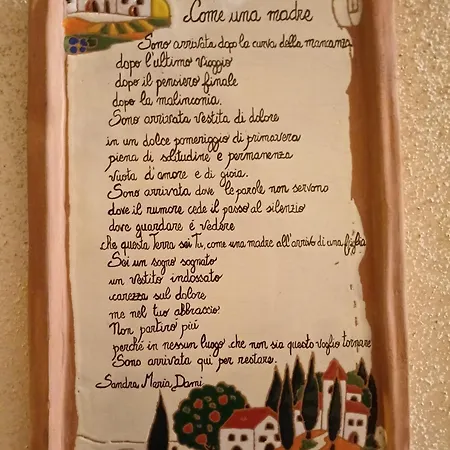 Come una madre
Sono arrivata dopo la curva della mancanza
dopo l'ultimo viaggio
dopo il pensiero finale
dopo la malinconia.
Sono arrivata vestita di dolore
in un dolce pomeriggio di primavera
piena di solitudine e permanenza
vuota d'amore e di gioia.
Sono arrivata dove le parole non servono
dove il rumore cede il passo al silenzio
dove guardare é vedere
che questa Terra sei Tu, come una madre all'arrivo di una figlia
Sei un sogno sognato
un vestito indossato
carezza sul dolore
me nel tuo abbraccio
Non partirò più
perché in nessun luogo che non sia questo voglio tornare
Sono arrivata qui per restare.
Sandra Maria Dami